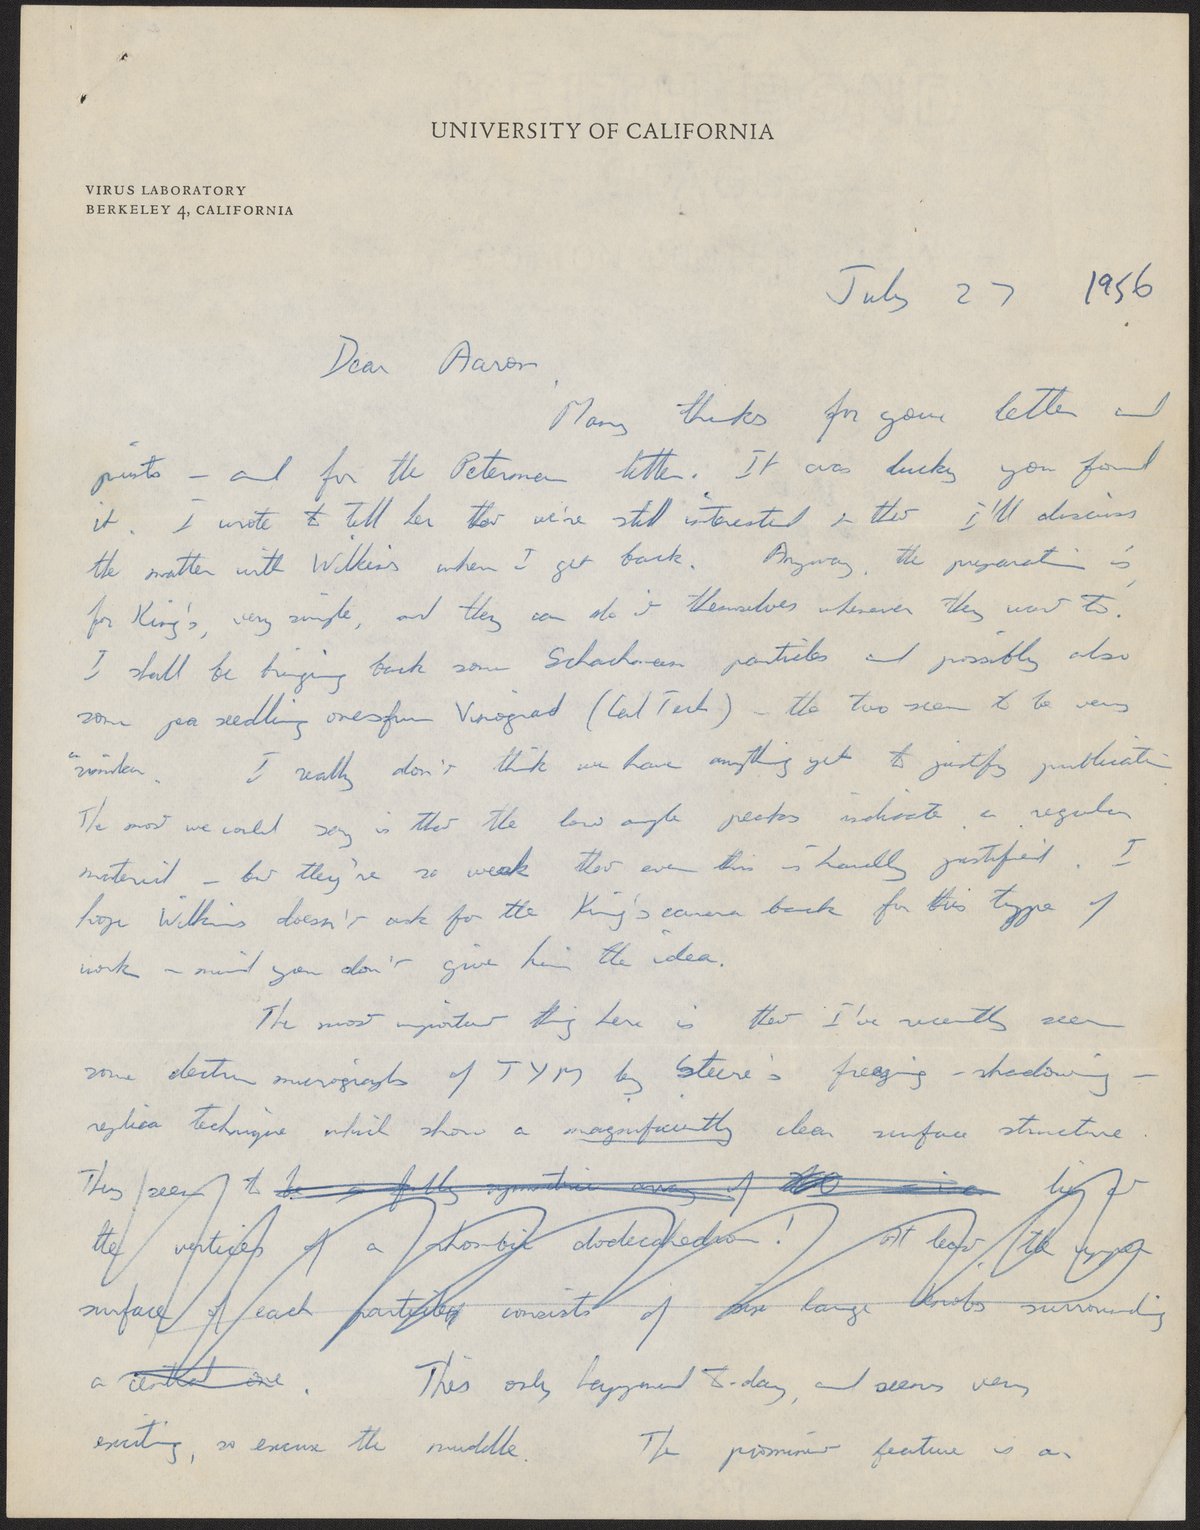 UNIVERSITY OF CALIFORNIA
VIRUS LABORATORY
BERKELEY 4, CALIFORNIA
July 27 1956
Dear Aaron,
Many thanks for your letter and
prints – and for the Peterman letter. It was lucky you found
it. I wrote to tell her that we're still interested & that I'll discuss
the matter with Wilkins when I get back. Anyway, the preparation is,
for King's, very simple, and they can do it themselves whenever they want to.
I shall be bringing back some Schachman particles and possibly also
some pea seedling ones from Vinograd (Cal Tech) – the two seem to be very
similar. I really don't think we have anything yet to justify publication
The most we could say is that the low angle peaks indicate a regular
material – but they're so weak that even this is hardly justified. I
hope Wilkins doesn't ask for the King's camera back for this type of
work – mind you don't give him the idea.
The most important thing here is that I've recently seen
some electron micrographs of TYM by Steere's freezing – shadowing –
replica technique which show a magnificently clear surface structure.
They seem to be a fully symmetric array of
the vertices of a rhombic dodecahedron! at least, the upper
surface of each particle consists of six large knobs surrounding
a central one. This only happened to-day, and seems very
exciting, so excuse the muddle. The prominent feature is an